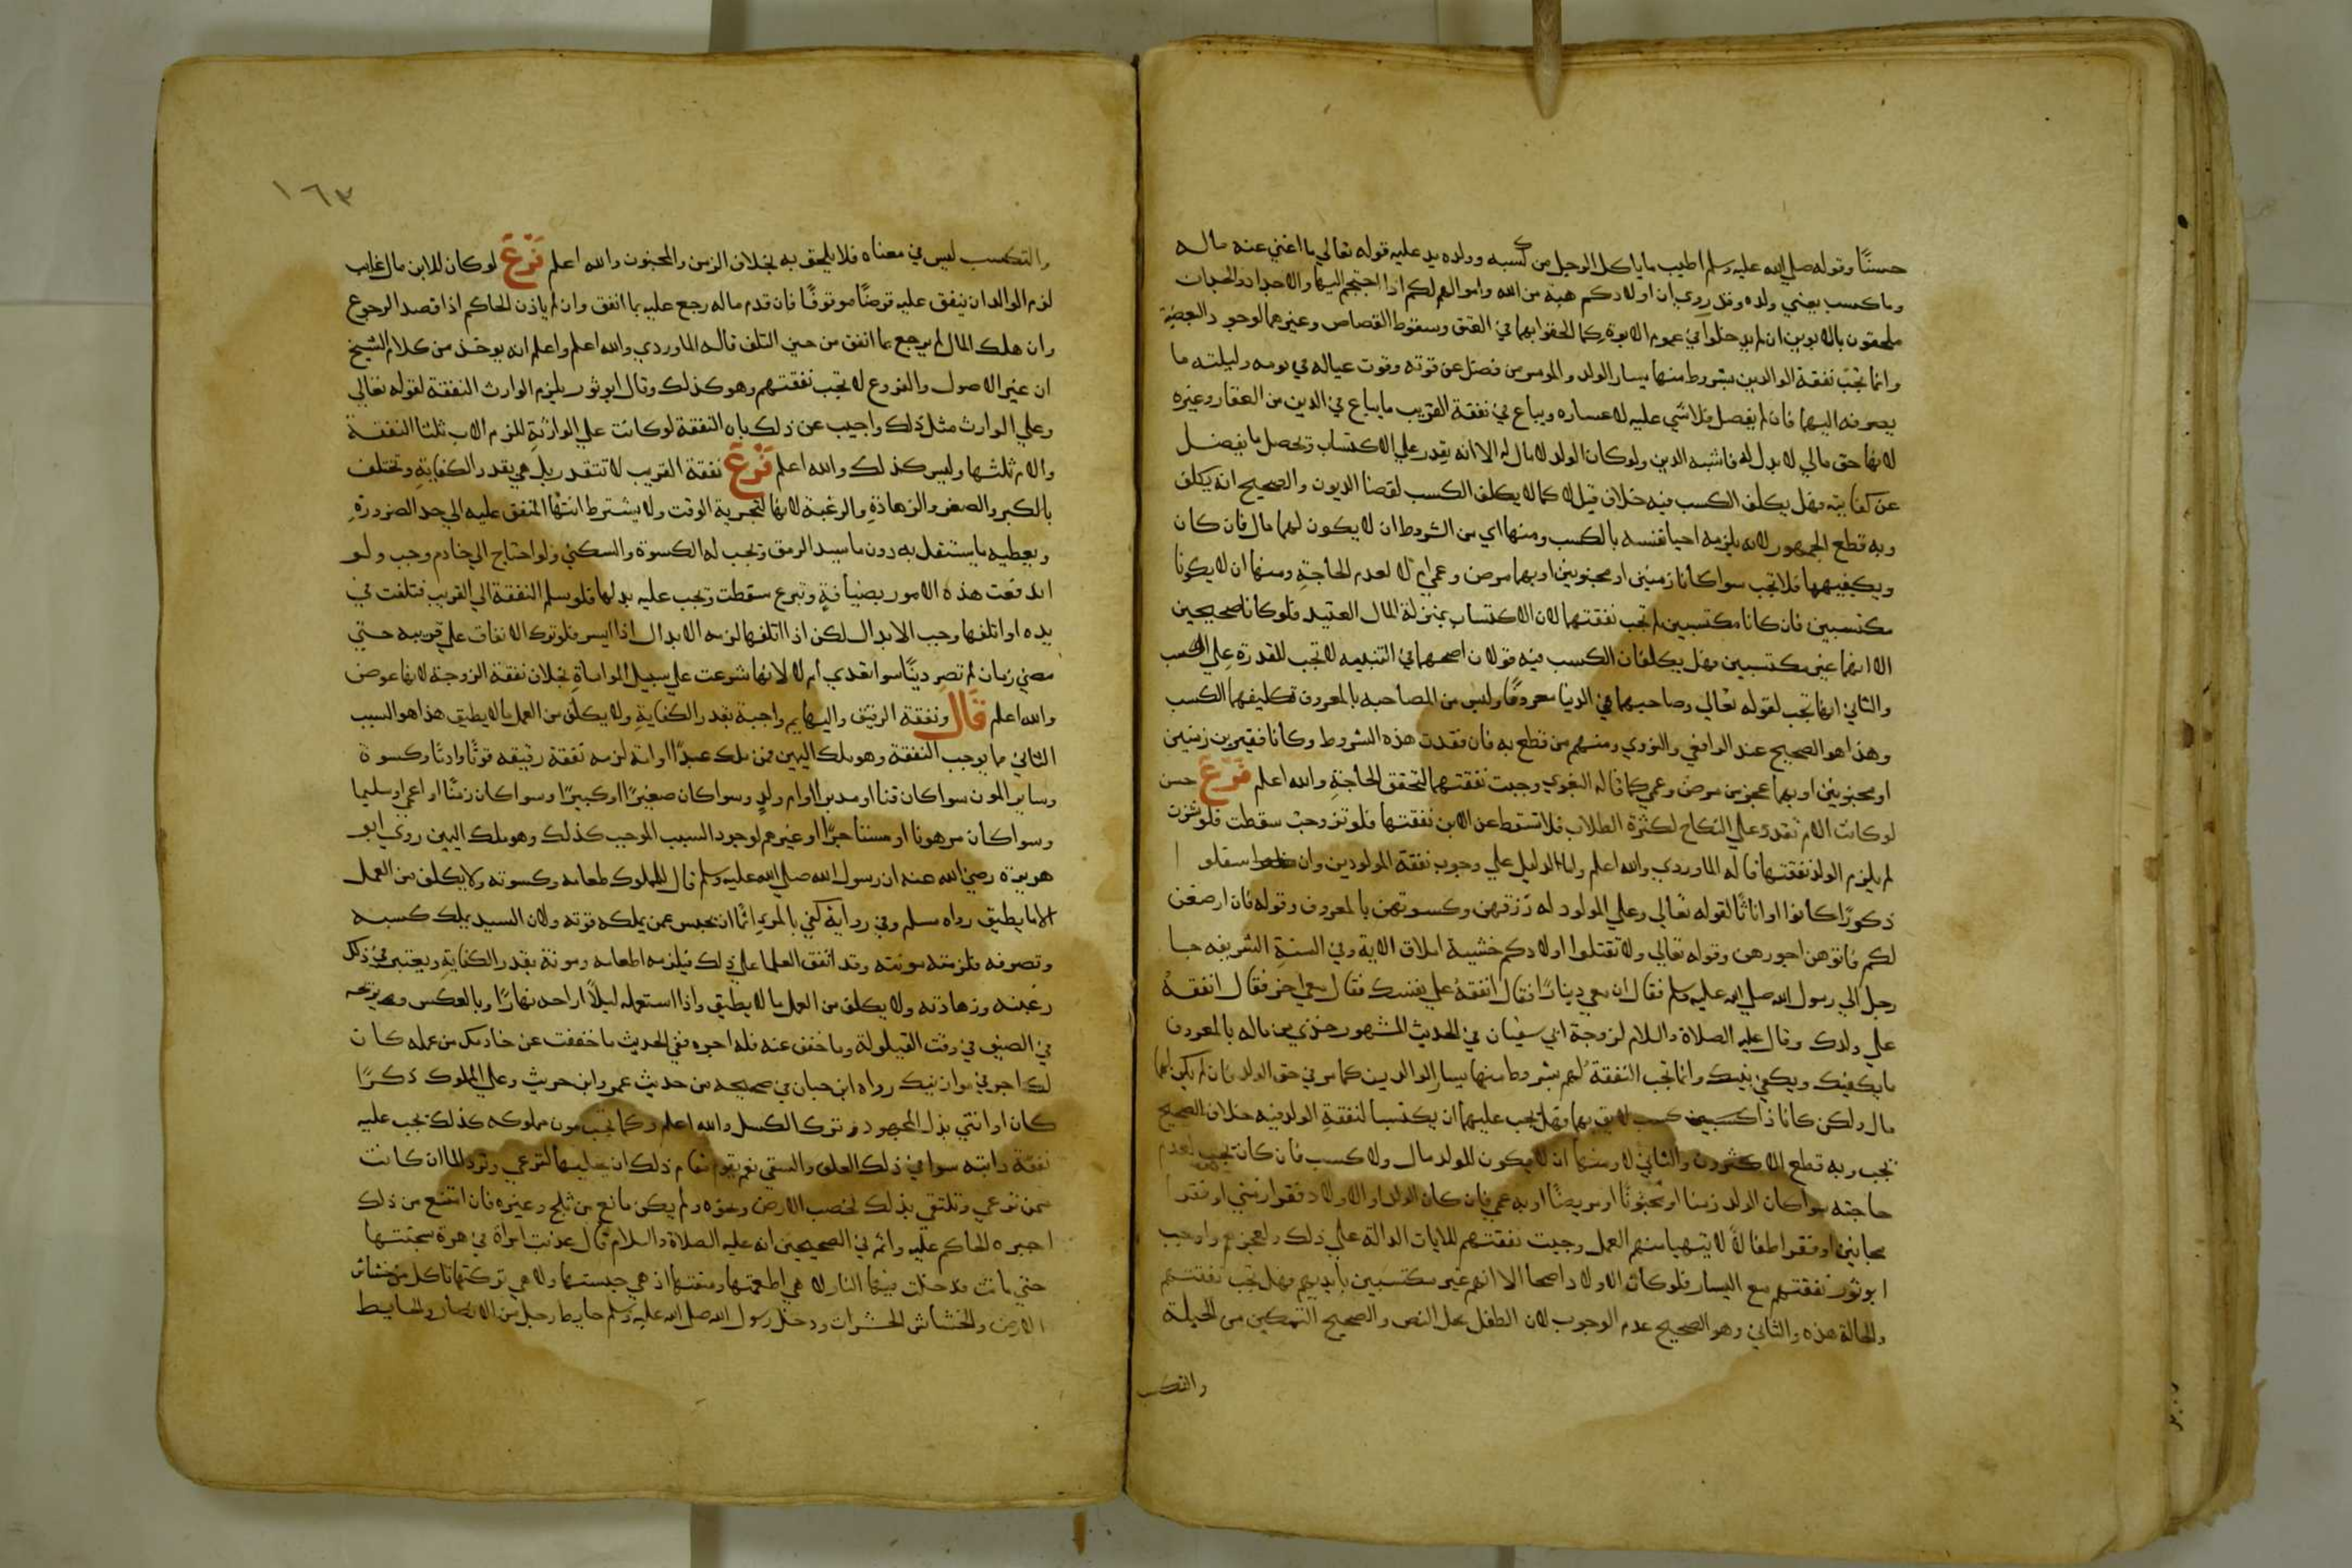 حسنًا وقوله صلي الله عليه وسلم اطيب ما ياكل الرجل من كسبه وولده يد عليه قوله تعالي ما اغني عنه ماله
وما كسب يعني ولده وقد روي ان اولادكم هبة من الله واموالهم لكم اذا احتجتم اليها والاجداد والجدات
ملحقون بالابوين ان لم يدخلوا في عموم الابوة كما الحقوا بهما في العتق وسقوط القصاص وغيرهما لوجود البعضية
وانما تجب نفقة الوالدين بشروط منها يسار الولد والموسر من فضل عن قوته وقوت عياله في يومه وليلته ما
يصرفه اليهما فان لم يفضل فلا شي عليه لاعساره ويباع في نفقة القريب ما يباع في الدين من العقار وغيره
لانها حق مالي لا بدل له فاشبه الدين ولو كان الولد لا مال له الا انه يقدر علي الاكتساب وتحصل ما يفضل
عن كفايته فهل يكلف الكسب فيه خلاف قيل لا كما لا يكلف الكسب لقضا الديون والصحيح انه يكلف
وبه قطع الجمهور لانه يلزمه احيا نفسه بالكسب ومنها اي من الشروط ان لا يكون لهما مال فان كان
ويكفيهما فلا تجب سوا كانا زمنين او مجنونين او بهما مرض وعمي ام لا لعدم الحاجة ومنها ان لا يكونا
مكتسبين فان كانا مكتسبين لم تجب نفقتهما لان الاكتساب بمنزلة المال العتيد فلو كانا صحيحين
الا انهما غير مكتسبين فهل يكلفان الكسب فيه قولان اصحهما في التنبيه لا تجب للقدرة علي الكسب
والثاني انها تجب لقوله تعالي وصاحبهما في الدنيا معروفا وليس من المصاحبه بالمعروف تكليفهما الكسب
وهذا هو الصحيح عند الرافعي والنووي ومنهم من قطع به فان فقدت هذه الشروط وكانا فقيرين زمنين
او مجنونين او بهما عجز من مرض وعمي كما قاله البغوي وجبت نفقتهما لتحقق الحاجة والله اعلم فرع حسن
لو كانت الام تقدر علي النكاح لكثرة الطلاب فلا تسقط عن الابن نفقتها فلو تزوجت سقطت فلو نشزت
لم يلزم الولد نفقتها قاله الماوردي والله اعلم واما الدليل علي وجوب نفقة المولودين وان سفلوا
ذكورًا كانوا او اناثًا لقوله تعالي وعلي المولود له رزقهن وكسوتهن بالمعروف وقوله فان ارضعن
لكم فاتوهن اجورهن وقوله تعالي ولا تقتلوا اولادكم خشية املاق الاية وفي السنة الشريفه جا
رجل الي رسول الله صلي الله عليه وسلم فقال ان معي دينارًا فقال انفقه علي نفسك فقال معي اخر فقال انفقه
علي ولدك وقال عليه الصلاة والسلام لزوجة ابي سفيان في الحديث المشهور خذي من ماله بالمعروف
ما يكفيك ويكفي بنيك وانما تجب النفقة لهم بشروط منها يسار الوالدين كما مر في حق الولد فان لم يكن لهما
مال ولكن كانا ذا كسب يليق بهما فهل يجب عليهما ان يكتسبا لنفقة الولد فيه خلاف الصحيح
تجب وبه قطع الاكثرون والثاني لا ومنها ان لا يكون للولد مال ولا كسب فان كان تجب لعدم
حاجته سوا كان الولد زمنا او مجنونًا او مريضًا او به عمي فان كان الولد او الاولاد فقرا زمني او فقرا
مجانين او فقرا اطفالاً لا يتهيا منهم العمل وجبت نفقتهم للايات الدالة علي ذلك ولعجزهم واوجب
ابو ثور نفقتهم مع اليسار فلو كان الاولاد اصحا الا انهم غير مكتسبين بايديهم فهل تجب نفقتهم
والحالة هذه والثاني وهو الصحيح عدم الوجوب لان الطفل محل النص والصحيح التمكين من الحيلة
والتكسب
١٦٣
والتكسب ليس في معناه فلا يلحق به بخلاف الزمن والمجنون والله اعلم فرع لو كان للابن مال غايب
لزم الوالد ان ينفق عليه قرضًا موقوفًا فان قدم ماله رجع عليه بما انفق وان لم ياذن الحاكم اذا قصد الرجوع
وان هلك المال لم يرجع بما انفق من حين التلف قاله الماوردي والله اعلم واعلم انه يوخذ من كلام الشيخ
ان غير الاصول والفروع لا تجب نفقتهم وهو كذلك وقال ابو ثور يلزم الوارث النفقة لقوله تعالي
وعلي الوارث مثل ذلك واجيب عن ذلك بان النفقة لو كانت علي الوارثة للزم الاب ثلثا النفقة
والام ثلثها وليس كذلك والله اعلم فرع نفقة القريب لا تتقدر بل هي بقدر الكفاية وتختلف
بالكبر والصغر والزهادة والرغبة لانها لتجزية الوقت ولا يشترط انتها المنفق عليه الي حد الضرورة
ويعطيه ما يستقل به دون ما يسد الرمق وتجب له الكسوة والسكني ولو احتاج الي خادم وجب ولو
اندفعت هذه الامور بضيافة وتبرع سقطت وتجب عليه بدلها فلو سلم النفقة الي القريب فتلفت في
يده او اتلفها وجب الابدال لكن اذا اتلفها لزمه الابدال اذا ايسر فلو ترك الانفاق علي قريبه حتي
مضي زمان لم تصر دينًا سوا تعدي ام لا لانها شرعت علي سبيل المواساة بخلاف نفقة الزوجة لانها عوض
والله اعلم قال ونفقة الرقيق والبهايم واجبة بقدر الكفاية ولا يكلف من العمل ما لا يطيق هذا هو السبب
الثاني ما يوجب النفقة وهو ملك اليمين فمن ملك عبدًا او امة لزمه نفقة رقيقه قوتًا وادمًا وكسوة
وساير المون سوا كان قنا او مدبرا او ام ولد وسوا كان صغيرًا او كبيرًا وسوا كان زمنًا او اعمي او سليما
وسوا كان مرهونا او مستاجرًا او غيرهم لوجود السبب الموجب كذلك وهو ملك اليمين روي ابو
هريرة رضي الله عنه ان رسول الله صلي الله عليه وسلم قال للمملوك طعامه وكسوته ولا يكلف من العمل
الا ما يطيق رواه مسلم وفي رواية كفي بالمرء اثمًا ان يحبس عمن يملكه قوته ولان السيد يملك كسبه
وتصرفه فلزمته مونته وقد اتفق العلما علي ذلك فيلزمه اطعامه ومونة بقدر الكفاية ويعتبر في ذلك
رغبته وزهادته ولا يكلف من العمل ما لا يطيق واذا استعمله ليلاً اراحه نهارًا وبالعكس ويريحه
في الصيف في وقت القيلولة وما خفف عنه فله اجره ففي الحديث ما خففت عن خادمك من عمله كان
لك اجر في موازينك رواه ابن حبان في صحيحه من حديث عمرو ابن حريث وعلي المملوك ذكرًا
كان او انثي بذل المجهود وترك الكسل والله اعلم وكما تجب مون مملوكه كذلك تجب عليه
نفقة دابته سوا في ذلك العلف والسقي نعم يقوم مقام ذلك ان يخليها لترعي وترد الما ان كانت
ممن ترعي وتكتفي بذلك لخصب الارض ونحوه ولم يكن مانع من ثلج وغيره فان امتنع من ذلك
اجبره الحاكم عليه واثم ففي الصحيحين انه عليه الصلاة والسلام قال عذبت امراة في هرة سجنتها
حتي ماتت فدخلت فيها النار لا هي اطعمتها وسقتها اذ هي حبستها ولا هي تركتها تاكل من خشاش
الارض والخشاش الحشرات ودخل رسول الله صلي الله عليه وسلم حايط رجل من الانصار والحايط